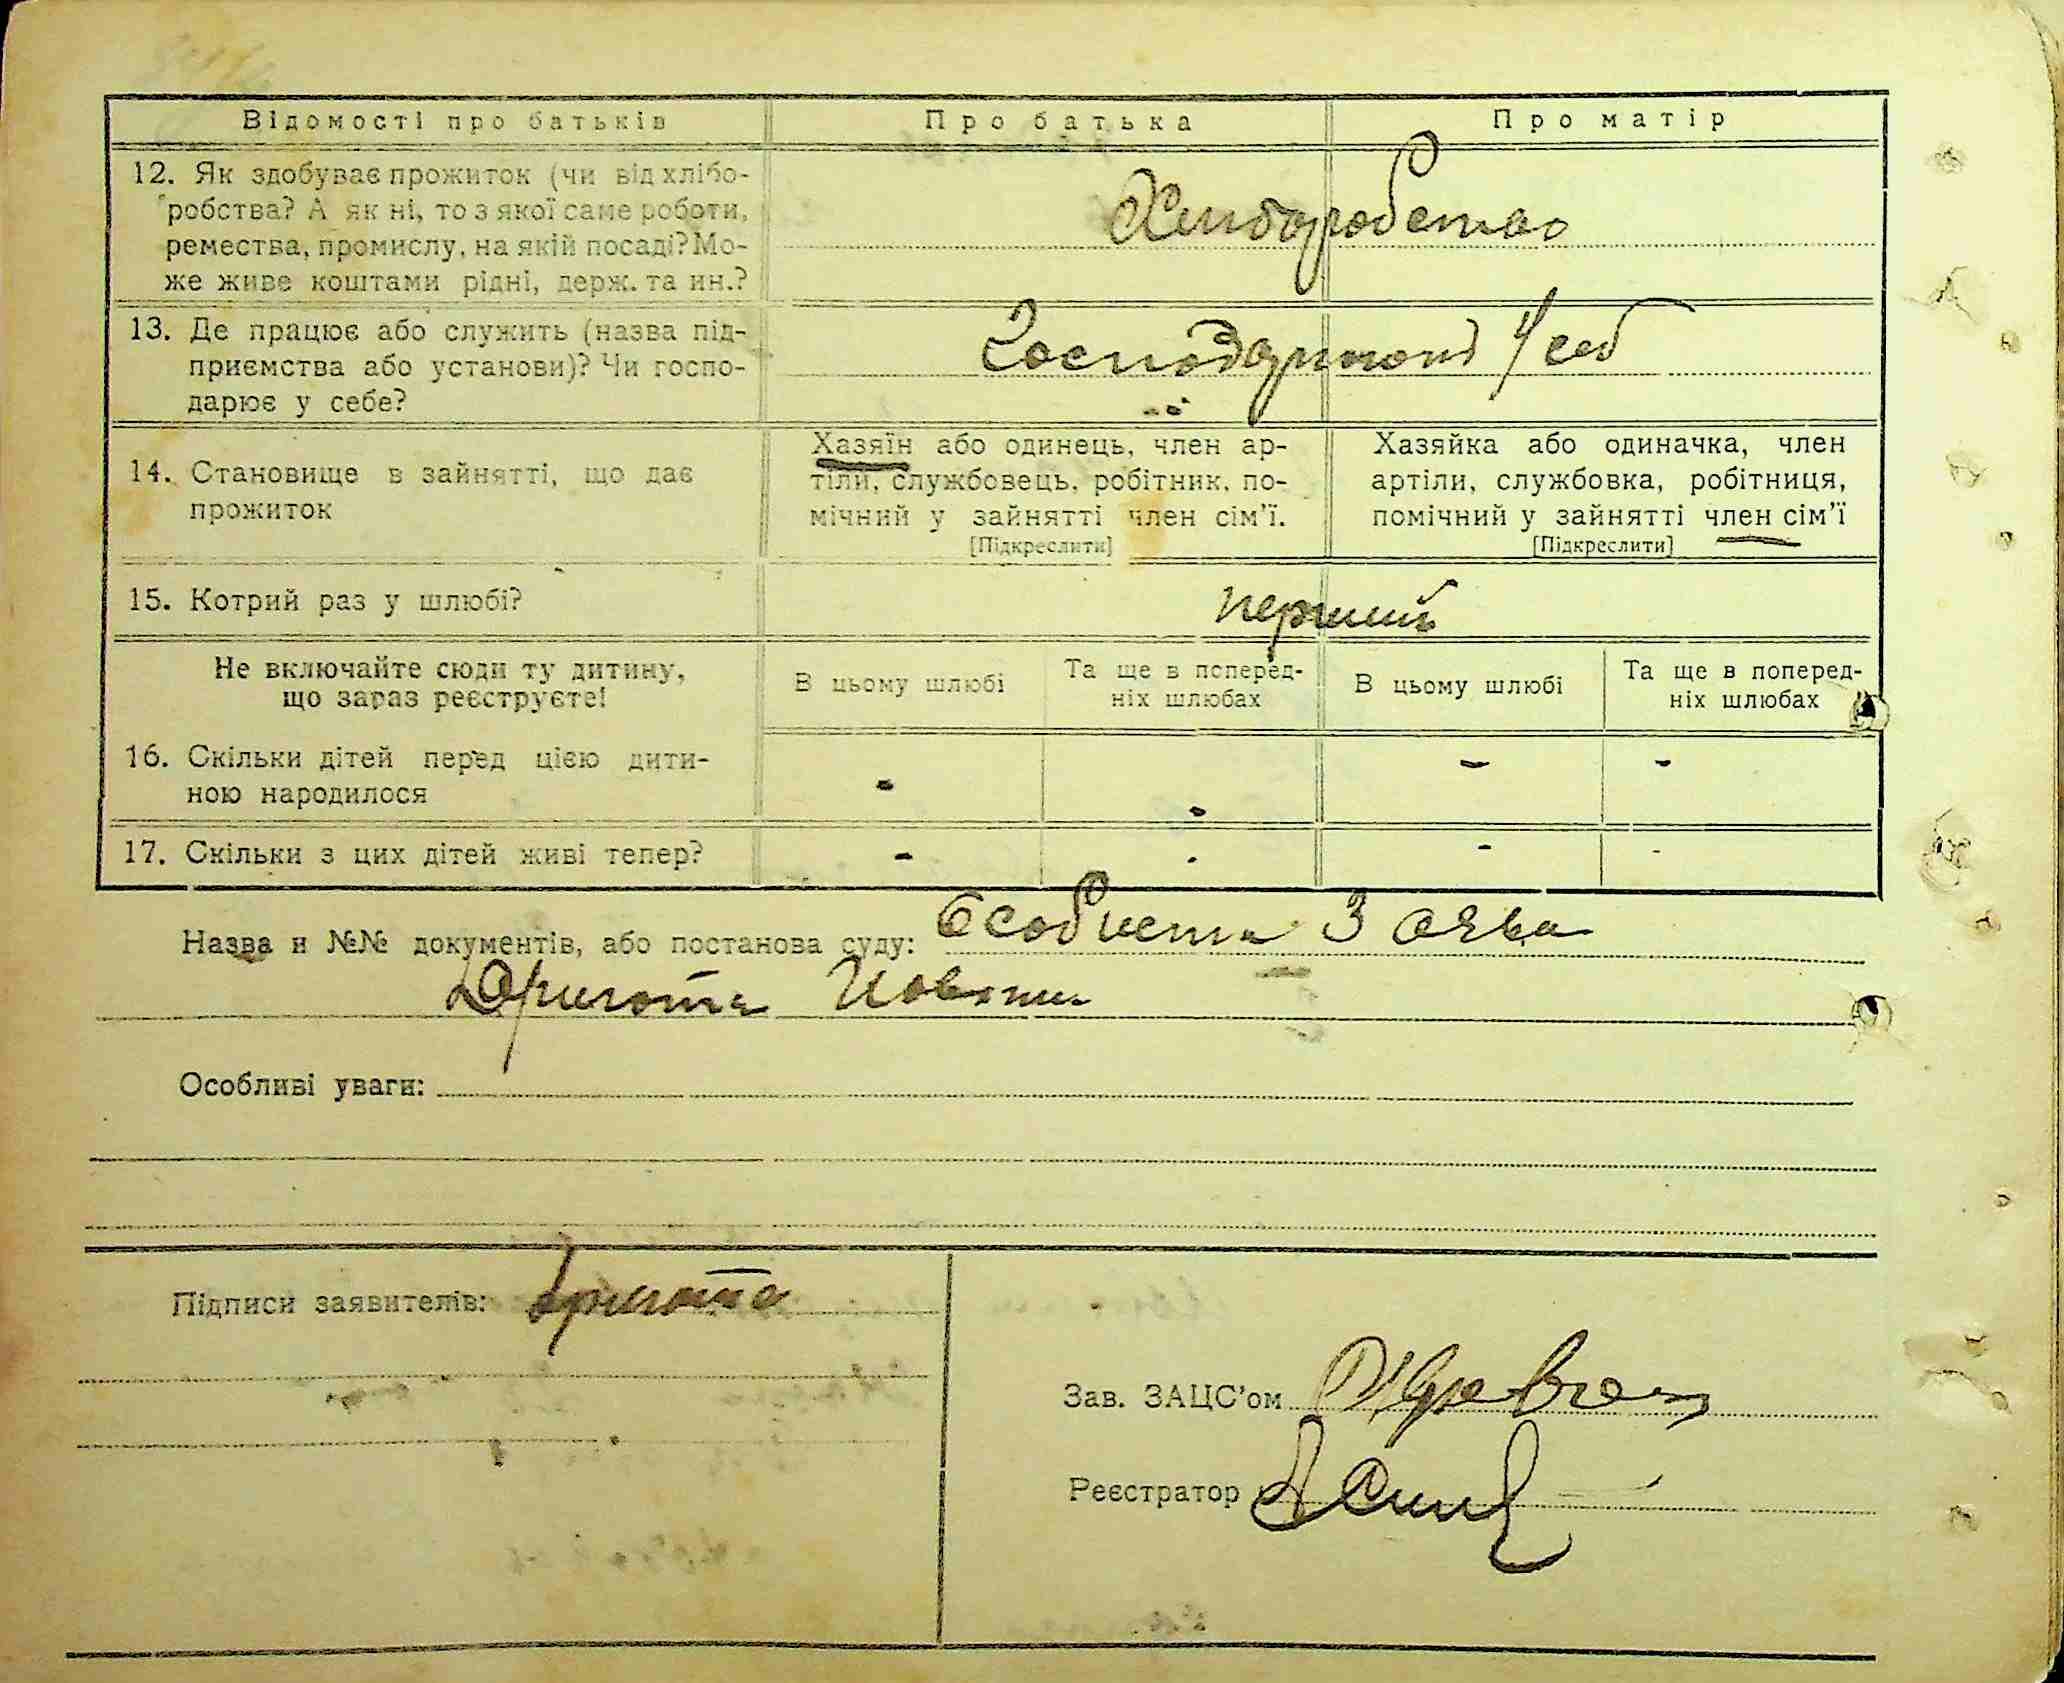 Відомості про батьків
Про батька
Про матір
12. Як здобуває прожиток (чи від хлібо-
робства? А як ні, то з якої саме роботи,
ремества, промислу, на якій посаді? Мо-
же живе коштами рідні, держ. та ин.?
Хлиборобство
13. Де працює або служить (назва під-
приємства або установи)? Чи госпо-
дарює у себе?
у себ
14. Становище в зайнятті, що дає
прожиток
Хазяїн або одинець, член ар-
тіли, службовець, робітник, по-
мічний у зайнятті член сім'ї.
[Підкреслити]
Хазяйка або одиначка, член
артіли, службовка, робітниця,
помічний у зайнятті член сім'ї
[Підкреслити]
15. Котрий раз у шлюбі?
перший
Не включайте сюди ту дитину,
що зараз реєструєте!
В цьому шлюбі
Та ще в поперед-
ніх шлюбах
В цьому шлюбі
Та ще в поперед-
ніх шлюбах
16. Скільки дітей перед цією дити-
ною народилося
- - - -
17. Скільки з цих дітей живі тепер?
- - - -
Назва и №№ документів, або постанова суду: Особиста Заява
Особливі уваги:
Підписи заявителів:
Зав. ЗАЦС'ом
Реєстратор